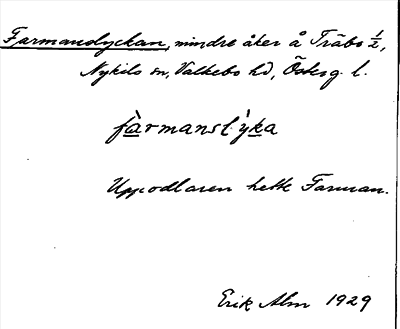 Farmanslyckan, mindre åker å Träbo ½,
Nykils sn, Valkebo hd, Östergl.
fàrmansl`yka
Uppodlaren hette Farman.
Erik Alm 1929